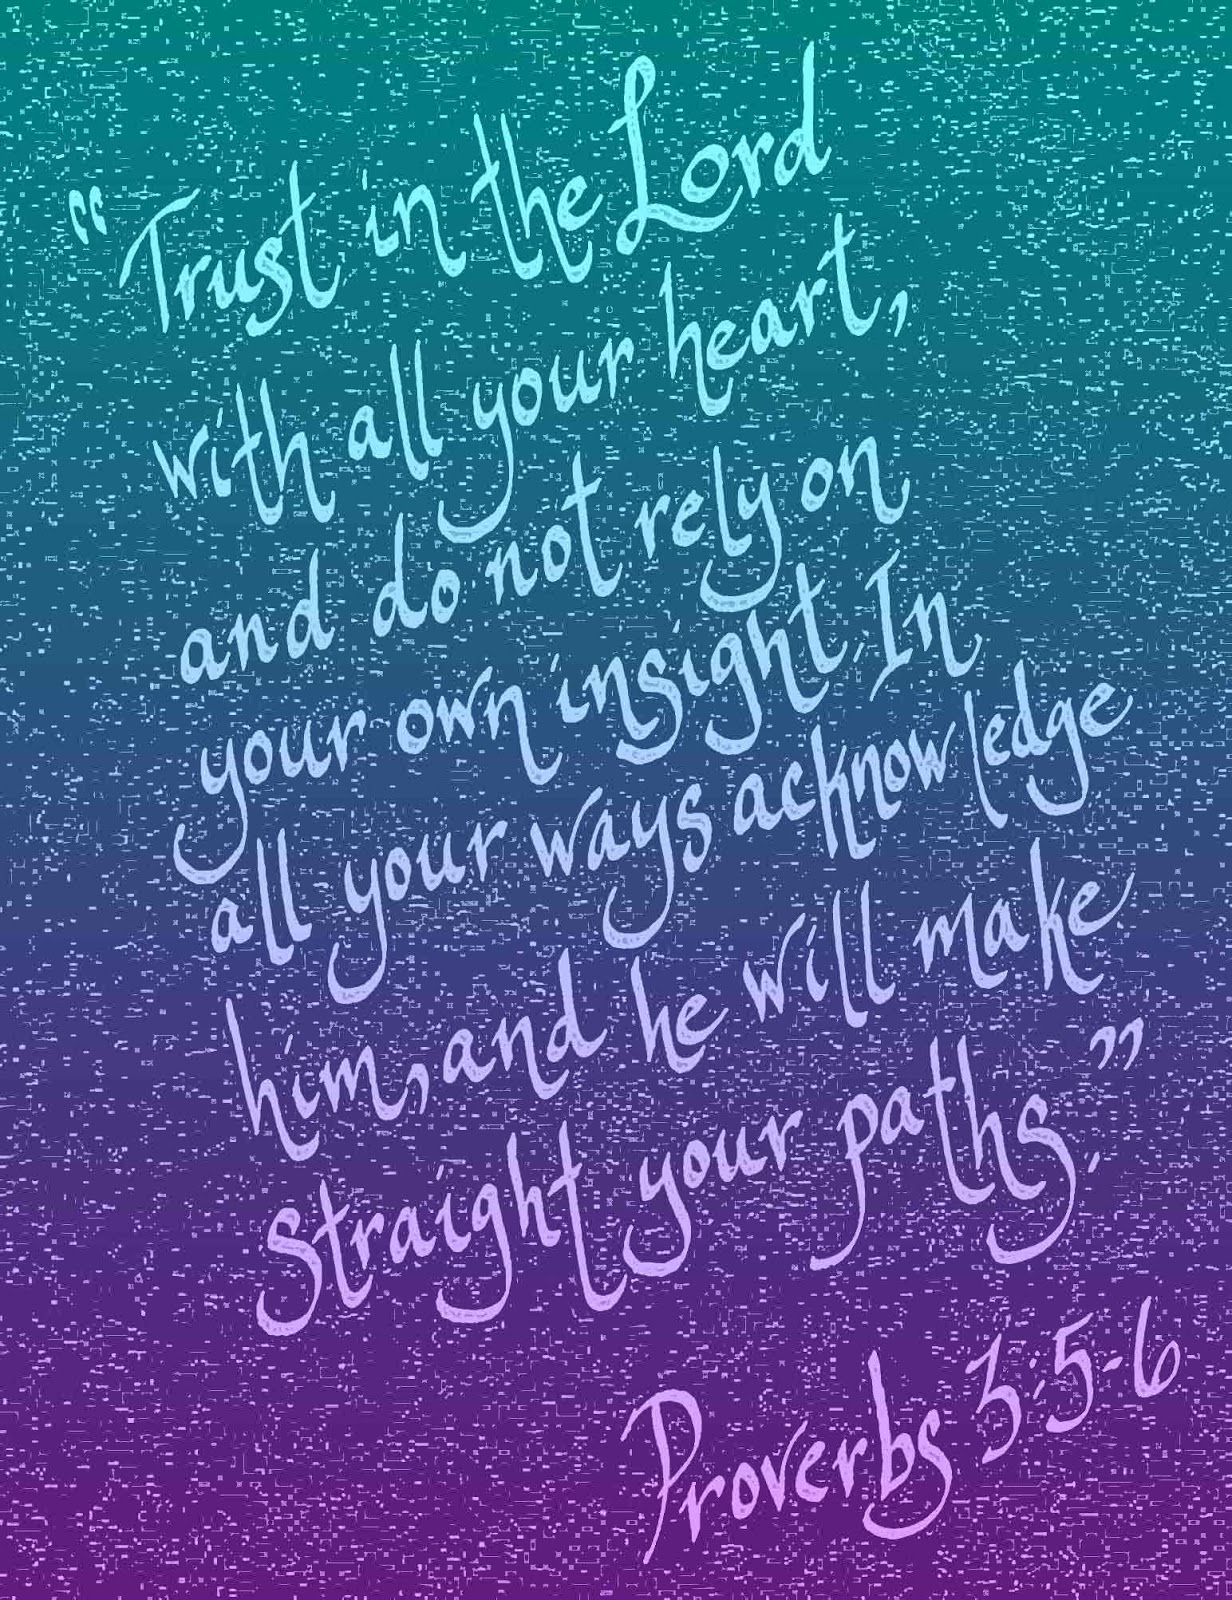 “Trust in the Lord
with all your heart,
and do not rely on
your own insight. In
all your ways acknowledge
him, and he will make
straight your paths.”
Proverbs 3:5-6